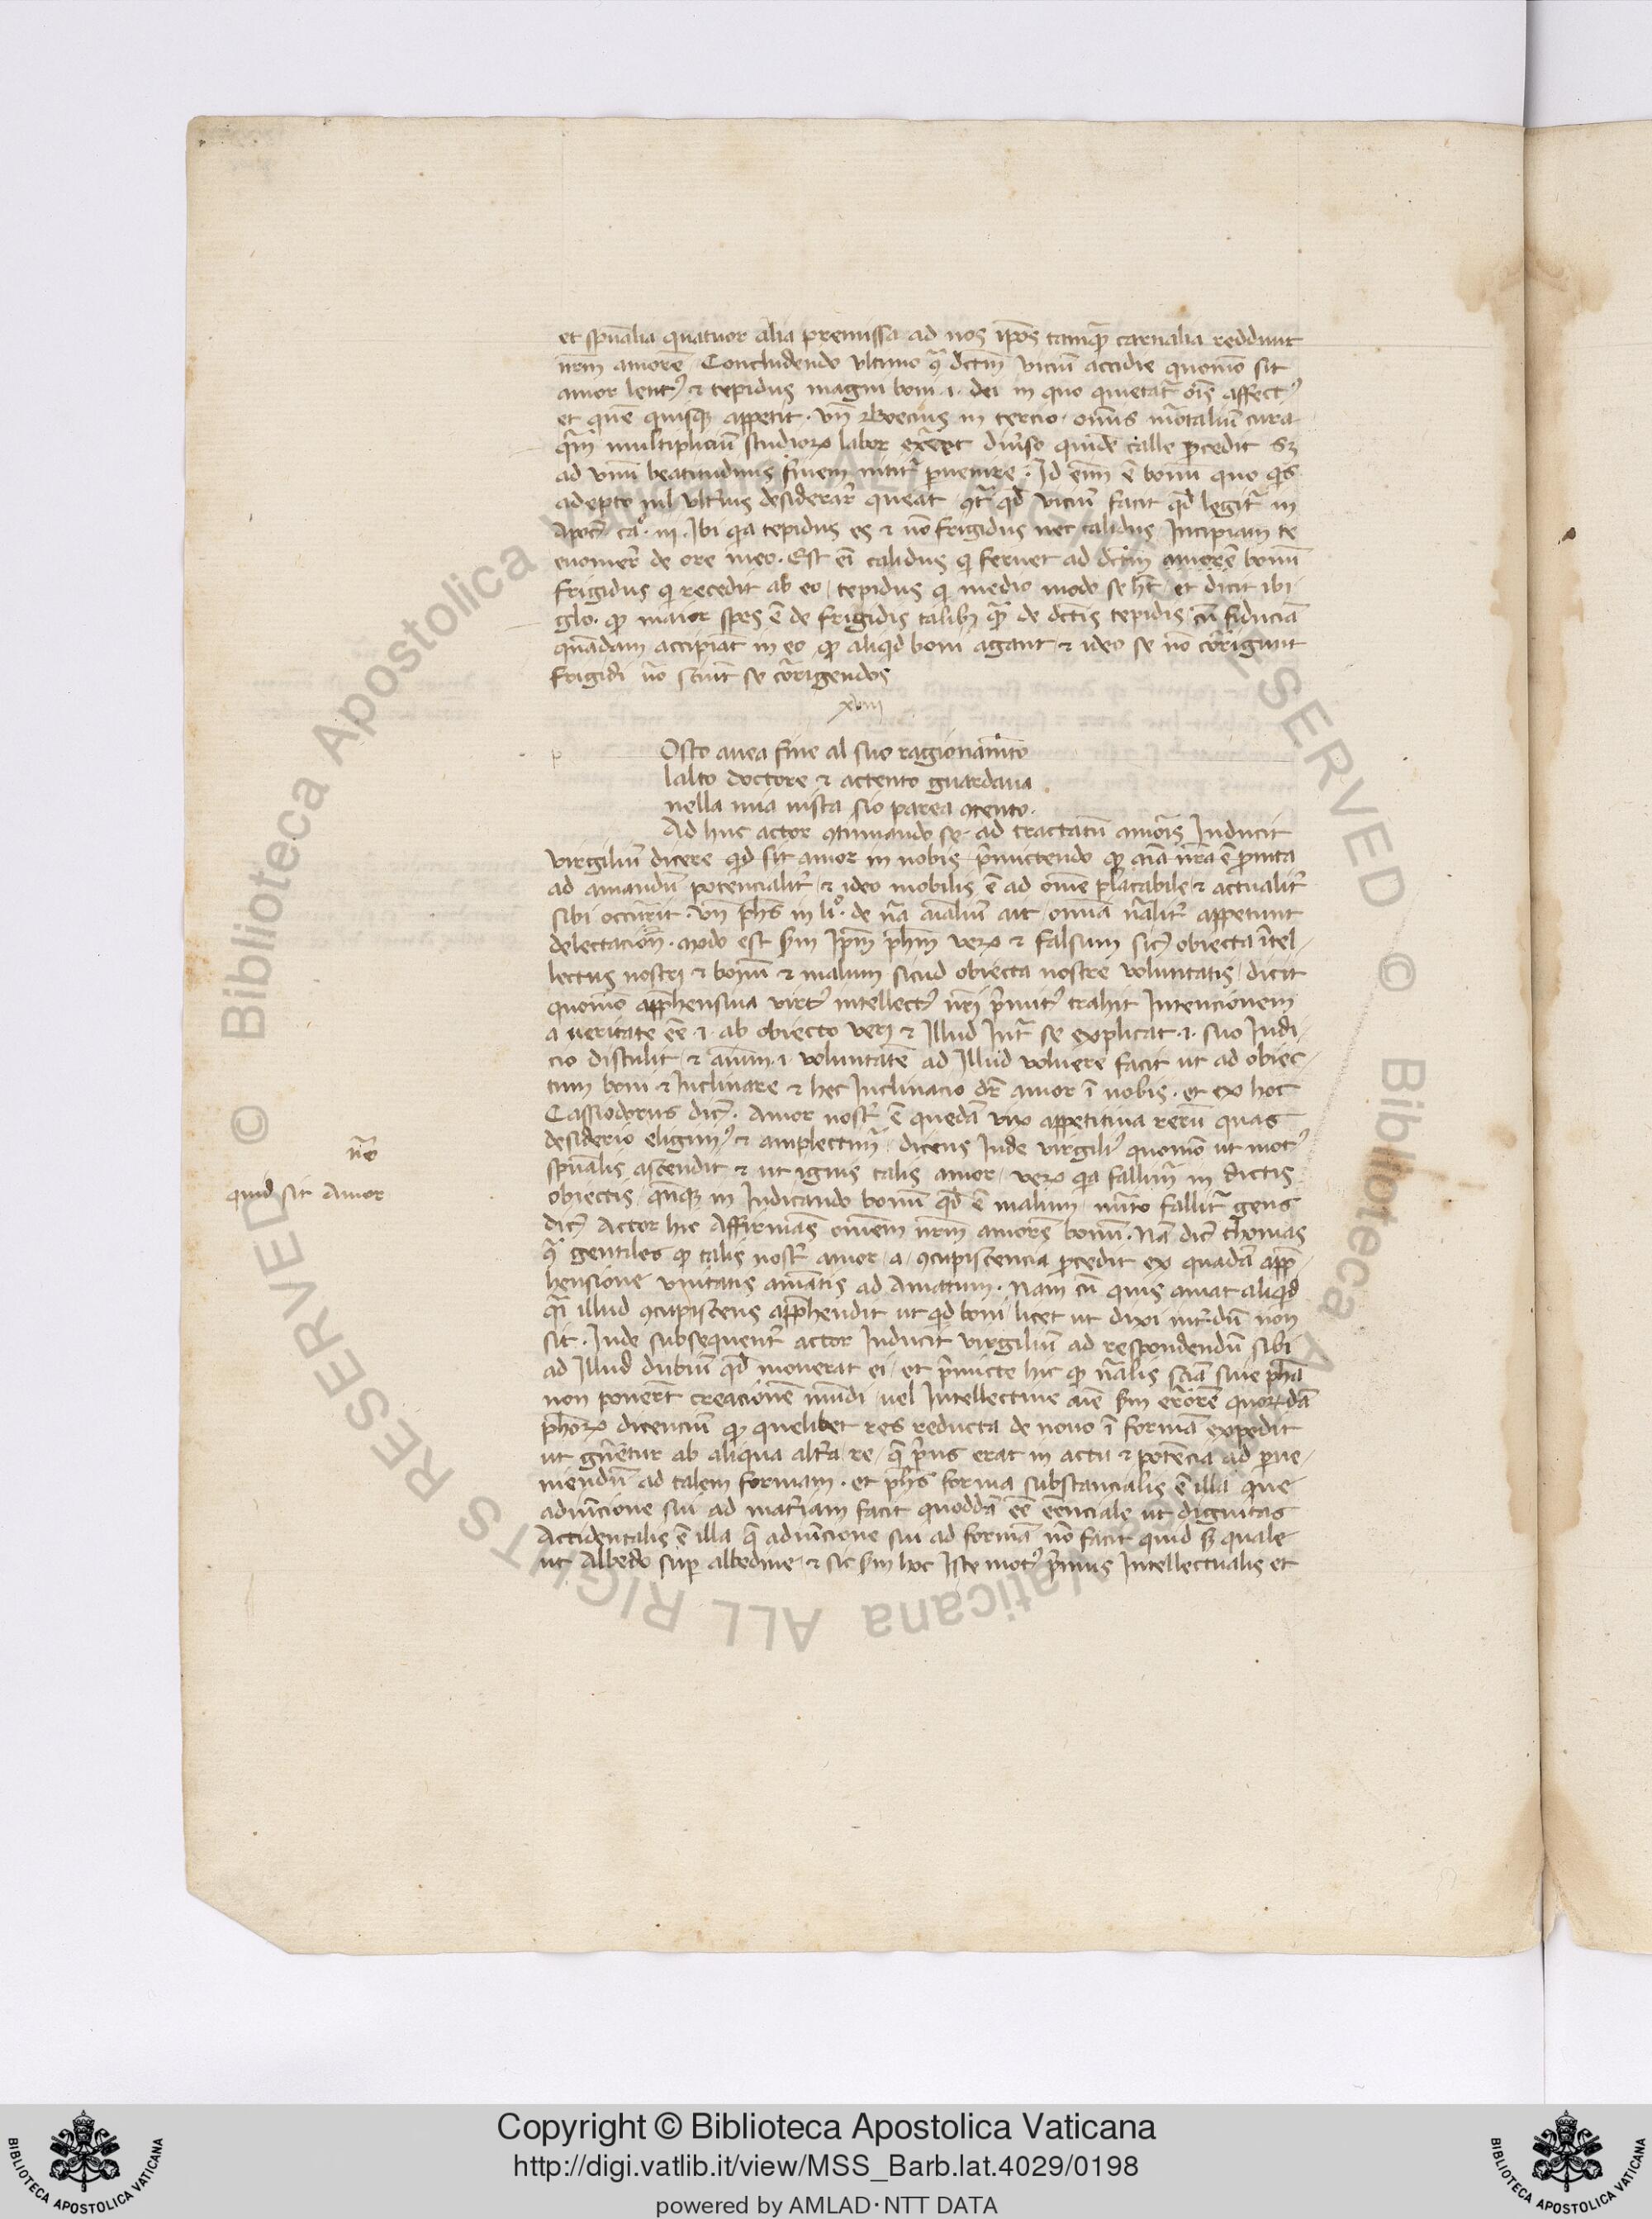 et spūalia quatuor alia premissa ad nos ipōs tamqȝ carnalia reddunt
nr̄m amorē Concludendo ultimo dc̄tm viciū accidie quomō sit
amor lent᾿ & tepidus magni boni .i. dei in quo quietat᾿ ōis affect᾿
et quē quisqȝ appetit. Vn̄ Boecius in tercio. omnis mortaliū cura
qm̄ multipliciū studioꝝ labor exercet diu᾿so quidē calle procedit sȝ
ad vnū beatitudinis finem nitit᾿ peruenire. Id enim ē bonū quo q̄s
adepto nil ult᾿ius desiderar᾿ queat ꝯt᾿ qd̄ viciū facit qd̄ legit᾿ in
Apoc᾿ ca°. iii. Ibi qa tepidus es & nō frigidus nec calidus Incipiam te
euomer᾿ de ore meo. Est eī calidus qi feruet ad dc̄tm amorē bonū
frigidus qi recedit ab eo, tepidus qi medio modo se h̄t, et dicit ibi
glo. qꝫ maior spes ē de frigidis talibȝ qȝ de dc̄tis tepidis cū fiduciā
quādam accipiāt in eo qꝫ aliqd boni agant & ideo se nō corrigunt
frigidi u᾿o sciūt se corrigendos
xviii
p Osto auea fine al suo ragionamēto
lalto doctore & actento guardaua
nella mia uista sio parea ꝯtento.
Ad huc actor ꝯtinuando se ad tractatū amoris Inducit
virgiliū dicere qd sit amor in nobis p᾿mictendo qꝫ aīa nr̄a ē prōnta
ad amandū potencialit᾿ & ideo mobilis ē ad omē placabile & actualit᾿
sibi occurrit. Vn̄ ph̄s in li°. de nā aīaliū ait, omnia nālit᾿ appetunt
delectacion̄. modo est sm̄ Ipm̄ ph̄m verꝝ & falsum sic᾿ obiecta ītel
lectus nostri & bonū & malum sicud obiecta nostre voluntatis, dicit
quomō apprehensiua virt᾿ intellect᾿ nr̄i p᾿mit᾿ trahit Intencionem
a ueritate ēē .i. ab obiecto veri & Illud Int᾿ se explicat .i. suo Iudi
cio discutit & aīum .i. voluntatē ad Illud voluere facit ut ad obiec
tum boni & Inclinare & hec Inclinacio dr̄ amor ī nobis. et ex hoc
Cassiodorus dic᾿. Amor nost᾿ ē quedā vix appetitiua rerū quas
desiderio eligim᾿ & amplectim᾿, dicens Inde virgili᾿ quomō ut mot᾿
spūalis ascendit & ut ignis talis amor, verꝝ qa fallim᾿ in dictis
obiectis, qn̄qȝ in Iudicando bonū qd̄ ē malum, m᾿ito fallit᾿ gens
dic᾿ Actor hic Affirmās omnem nr̄m amorē bonū. Nā dic᾿ thomas
ꝯ᾿ gentiles qꝫ talis nost᾿ amor, a, ꝯcupiscencia procedit ex quadā app
hensione vnitatis amātis ad Amatum. Nam cū quis amat aliqd
qi illud ꝯcupiscens app᾿hendit ut qd boni licet ut dixi int᾿dū non
sit. Inde subsequent᾿ actor Inducit virgiliū ad respondendū sibi
ad Illud dubiū qd̄ mouerat ei, et p᾿micte hic qꝫ nālis sciā siue ph̄ā
non ponere̅t creacionē mundi, uel Intellectiue aīe sm̄ errorē quorūdā
ph̄oꝝ dicenciū qꝫ quelibet res reducta de nouo ī formā expedit
ut gn̄etur ab aliqua alt᾿a re, q̄ p᾿ius erat in actu & potēcia ad perue
niendū ad talem formam. et ph̄s forma substancialis ē illa que
adiūcione sui ad mat᾿iam facit quoddā ēē ēēnciale ut dignitas
Accidentalis ē illa q̄ adiūcione sui ad formā nō facit quid sȝ quale
ut Albedo sup albedine, & sic sm̄ hoc Iste mot᾿ p᾿mus Intellectualis et
nōe
quid sit Amor
Copyright © Biblioteca Apostolica Vaticana
http://digi.vatlib.it/view/MSS_Barb.lat.4029/0198
powered by AMLAD·NTT DATA
BIBLIOTECA APOSTOLICA VATICANA
BIBLIOTECA APOSTOLICA VATICANA
© Biblioteca Apostolica Vaticana ALL RIGHTS RESERVED